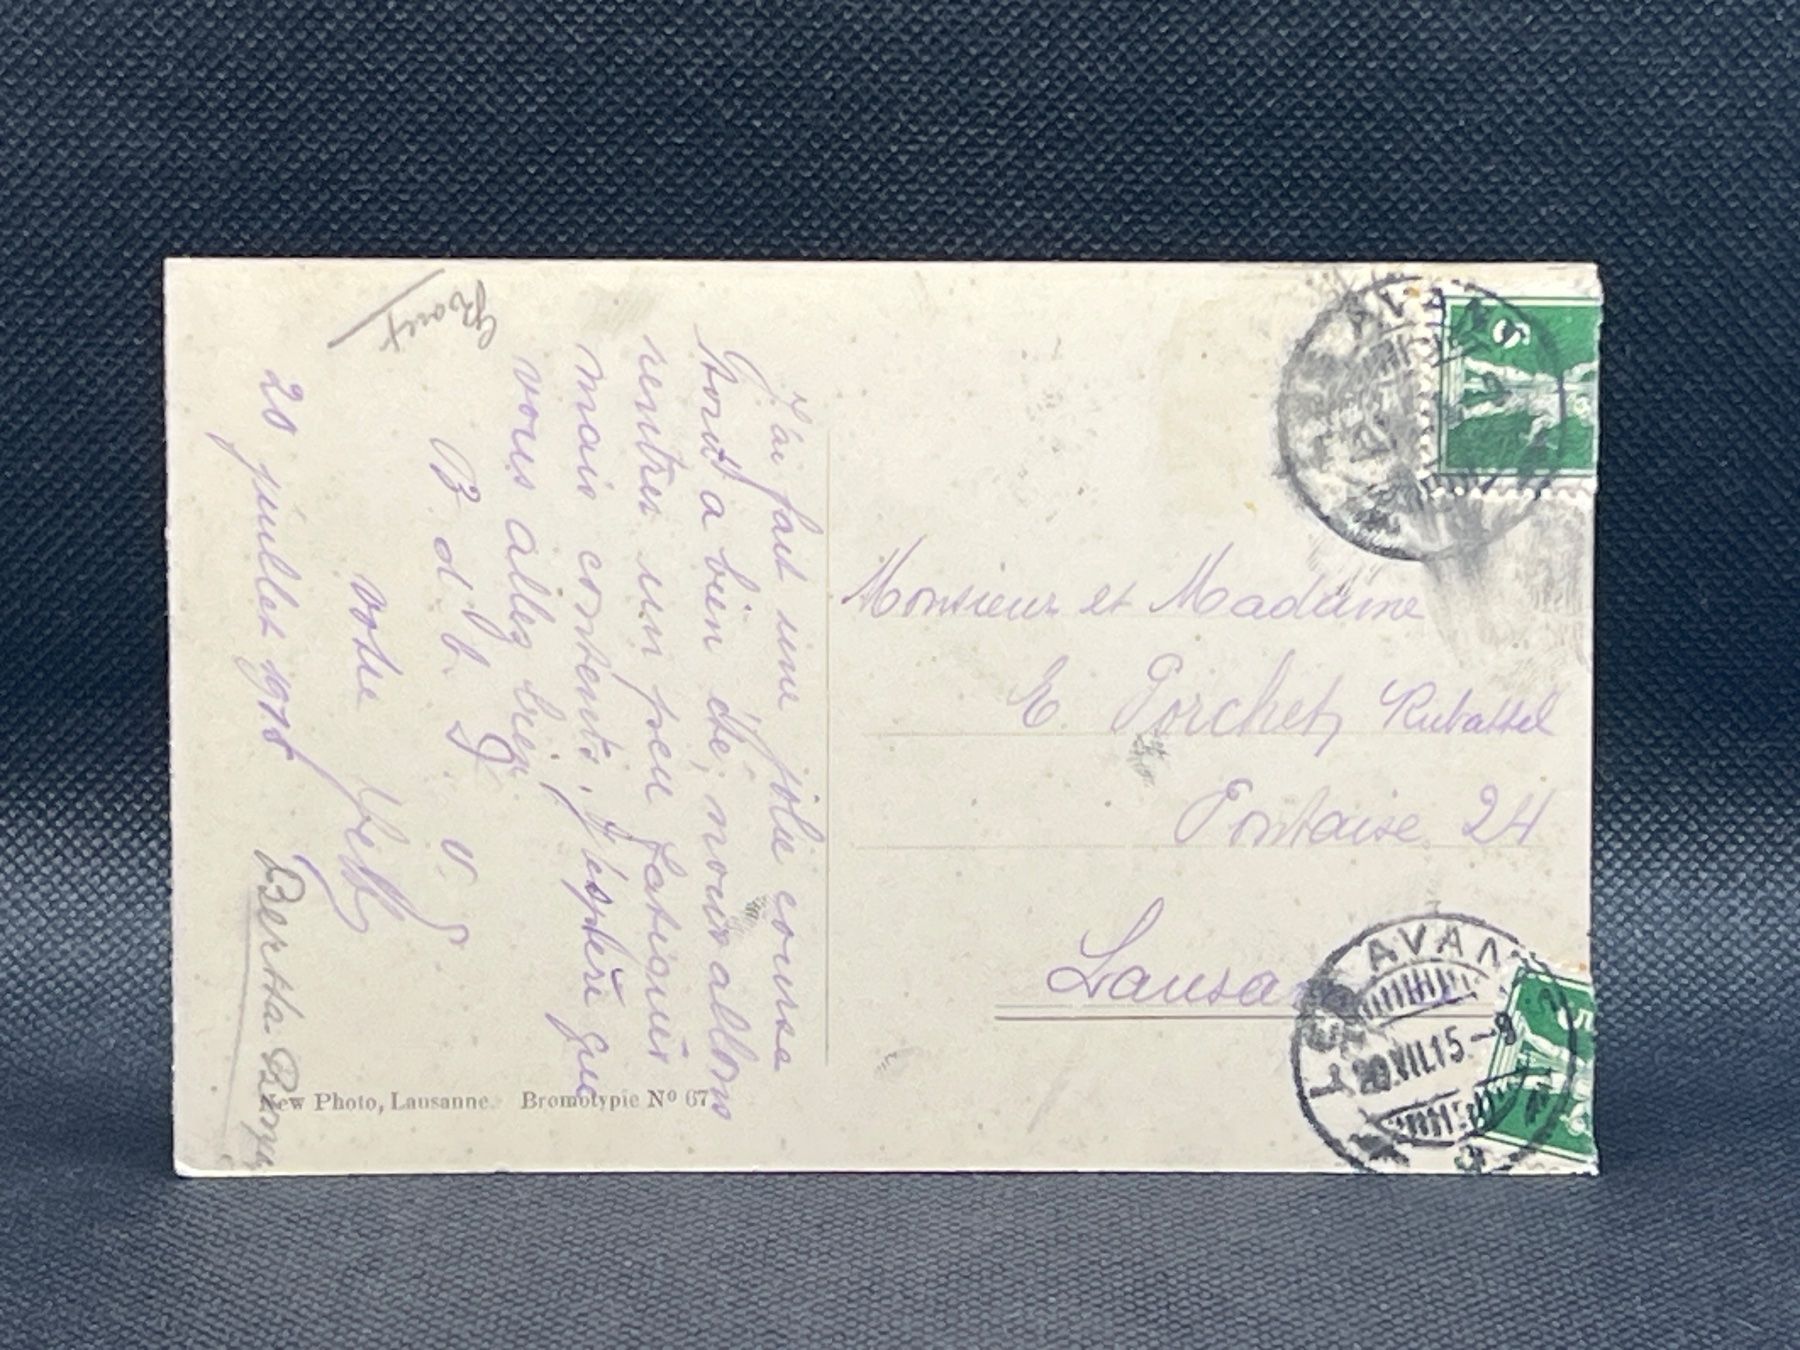 J'ai fait une jolie course
tout a bien été, nous allons
rentrer un peu fatigués
mais contents. J'espère que
vous allez bien
B. d. b. d. v. s.
votre
20 juillet 1915
Bertha
New Photo, Lausanne. Bromotypie Nº 67
5
AVAN
20.VII.15-8
Monsieur et Madame
E Porchet, Rubattel
Pontaise 24